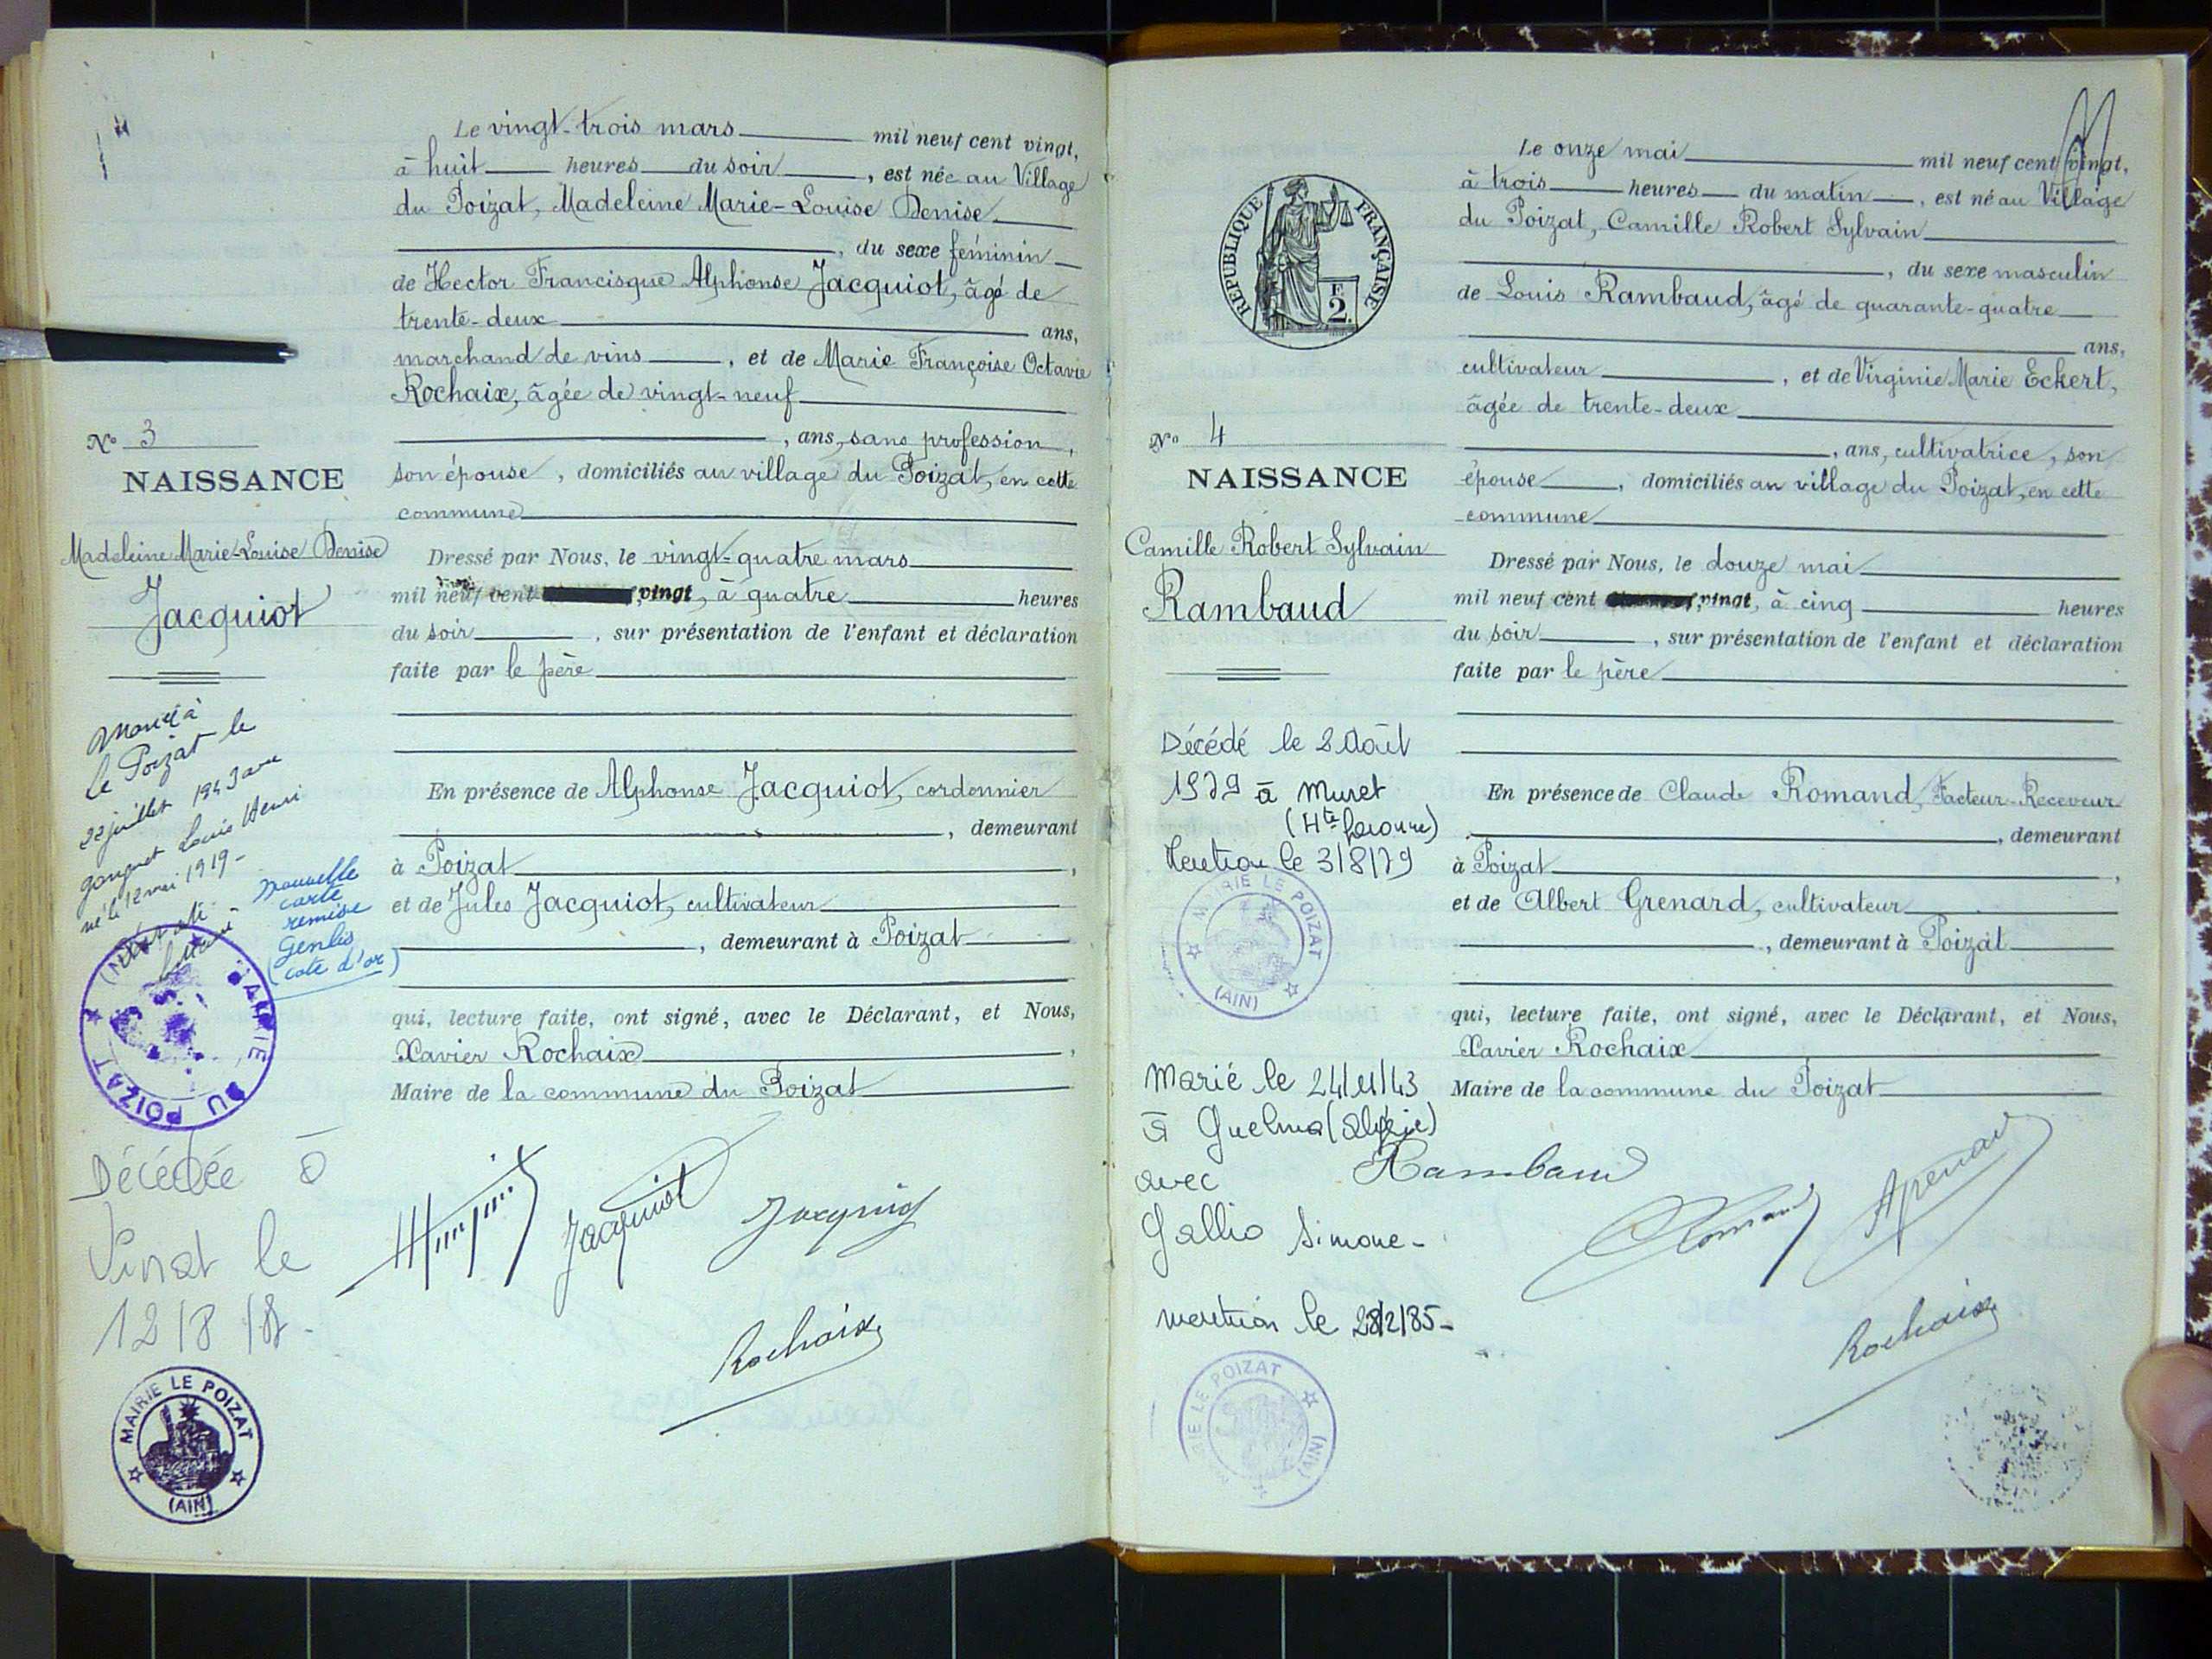 Le vingt-trois mars mil neuf cent vingt,
à huit heures du soir, est née au Village
du Poizat, Madeleine Marie-Louise Denise
, du sexe féminin
de Hector Francisque Alphonse Jacquiot, âgé de
trente-deux ans,
marchand de vins, et de Marie Françoise Octavie
Rochaix, âgée de vingt-neuf
, ans, sans profession,
son épouse, domiciliés au village du Poizat, en cette
commune
Dressé par Nous, le vingt-quatre mars
mil neuf cent vingt, à quatre heures
du soir, sur présentation de l'enfant et déclaration
faite par le père
En présence de Alphonse Jacquiot, cordonnier
, demeurant
à Poizat,
et de Jules Jacquiot, cultivateur
, demeurant à Poizat
qui, lecture faite, ont signé, avec le Déclarant, et Nous,
Xavier Rochaix,
Maire de la commune du Poizat
Jacquiot
Jacquiot
Rochaix
No 3
NAISSANCE
Madeleine Marie-Louise Denise
Jacquiot
Mariée à
le Poizat le
22 juillet 1943 avec
Louis Henri
né le 12 mai 1919 -
nouvelle
carte
remise
Genlis
(cote d'or)
MAIRIE DU POIZAT
Décédée à
le
12/8
MAIRIE LE POIZAT
(AIN)
Le onze mai mil neuf cent vingt,
à trois heures du matin, est né au Village
du Poizat, Camille Robert Sylvain
, du sexe masculin
de Louis Rambaud, âgé de quarante-quatre
ans,
cultivateur, et de Virginie Marie Eckert,
âgée de trente-deux
, ans, cultivatrice, son
épouse, domiciliés au village du Poizat, en cette
commune
Dressé par Nous, le douze mai
mil neuf cent vingt, à cinq heures
du soir, sur présentation de l'enfant et déclaration
faite par le père
En présence de Claude Romand, Facteur-Receveur
, demeurant
à Poizat,
et de Albert Grenard, cultivateur
, demeurant à Poizat
qui, lecture faite, ont signé, avec le Déclarant, et Nous,
Xavier Rochaix
Maire de la commune du Poizat
Rambaud
Romand
Rochaix
RÉPUBLIQUE FRANÇAISE
F.
2.
No 4
NAISSANCE
Camille Robert Sylvain
Rambaud
Décédé le 2 Août
1979 à Muret
(Hte Garonne)
Mention le 3/8/79
MAIRIE LE POIZAT
(AIN)
Marié le 24/11/43
à Guelma (Algérie)
avec
Gallio Simone -
mention le 28/2/85 -
MAIRIE LE POIZAT
(AIN)